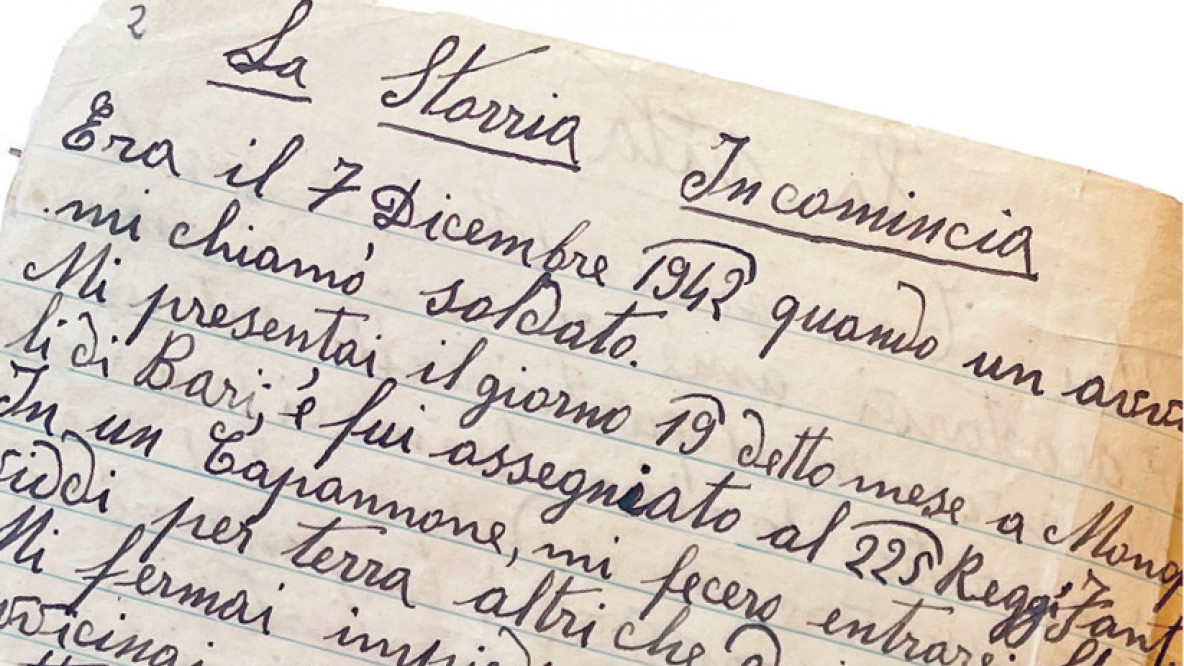 2
La Storria Incomincia
Era il 7 Dicembre 1942 quando un avvi
mi chiamò soldato.
Mi presentai il giorno 19 detto mese a Monop
li di Bari, è fui assegniato al 225 Regg. Fant
In un Capannone, mi fecero entrare
viddi per terra altri che
Mi fermai
vvicinai